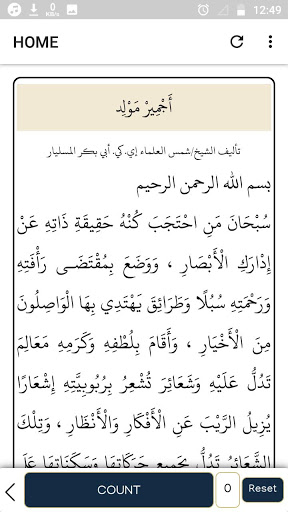 0 KB/s 12:49
HOME
أَجْمِيرْ مَوْلِد
تأليف الشيخ/شمس العلماء إي. كي. أبي بكر المسليار
بسم الله الرحمن الرحيم
سُبْحَانَ مَنِ احْتَجَبَ كُنْهُ حَقِيقَةِ ذَاتِهِ عَنْ
إِدْرَاكِ الْأَبْصَارِ ، وَوَضَعَ بِمُقْتَضَى رَأْفَتِهِ
وَرَحْمَتِهِ سُبُلًا وَطَرَائِقَ يَهْتَدِي بِهَا الْوَاصِلُونَ
مِنَ الْأَخْيَارِ ، وَأَقَامَ بِلُطْفِهِ وَكَرَمِهِ مَعَالِمَ
تَدُلُّ عَلَيْهِ وَشَعَائِرَ تُشْعِرُ بِرُبُوبِيَّتِهِ إِشْعَارًا
يُزِيلُ الرَّيْبَ عَنِ الْأَفْكَارِ وَالْأَنْظَارِ ، وَتِلْكَ
الشَّعَائِرُ تَدُلُّ بِجَمِيعِ حَرَكَاتِهَا وَسَكَنَاتِهَا عَلَى
COUNT 0 Reset